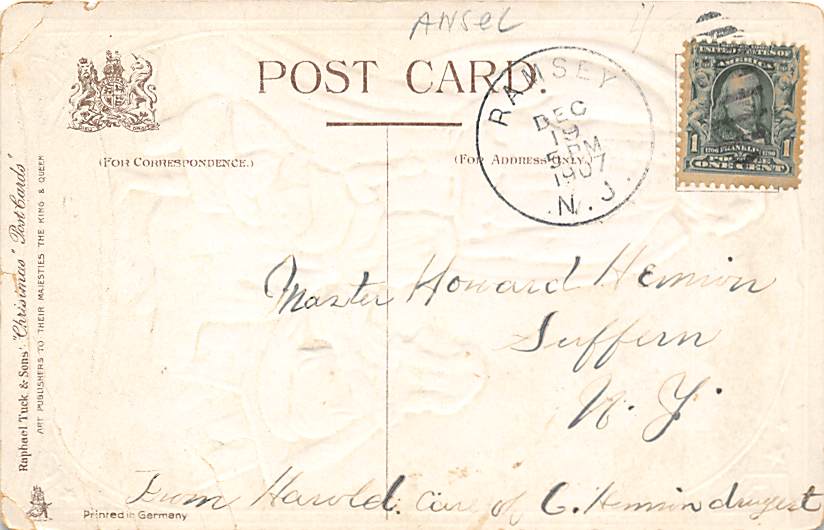 ANSEL
POST CARD.
(FOR CORRESPONDENCE.)
(FOR ADDRESS ONLY.)
RAMSEY
DEC
19
5 PM
1907
N.J.
UNITED STATES OF
AMERICA
1 FRANKLIN 1
POSTAGE
ONE CENT
Master Howard Hemion
Suffern
N.Y.
From Harold. Care of C. Hemion drugest
Raphael Tuck & Sons' "Christmas" Post Cards"
ART PUBLISHERS TO THEIR MAJESTIES THE KING & QUEEN
Printed in Germany